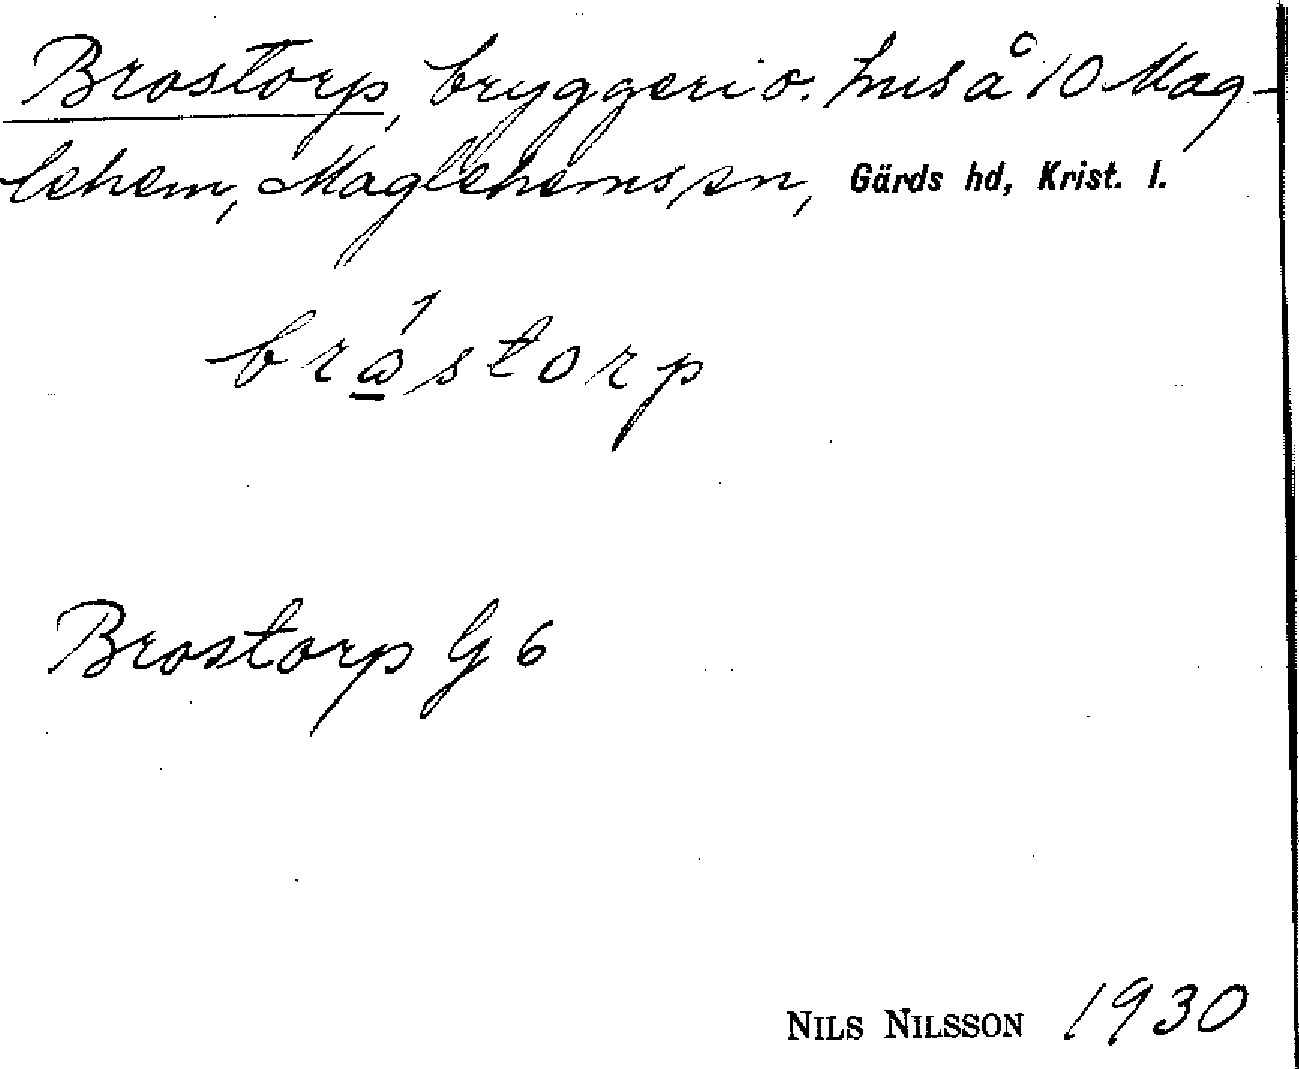 Brostorp, bryggeri o. hus å 10 Mag-
lehem, Maglehems sn, Gärds hd, Krist. l.
bråstorp
Brostorp G 6
NILS NILSSON 1930